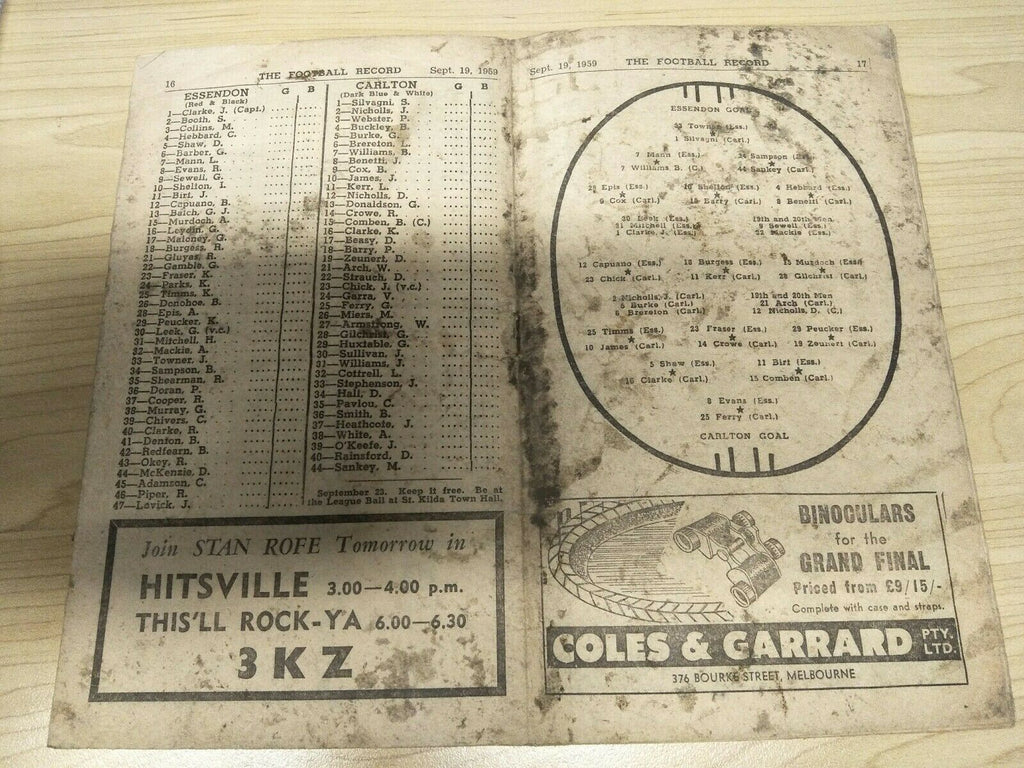 16 THE FOOTBALL RECORD Sept. 19, 1959
ESSENDON G B
(Red & Black)
1—Clarke, J. (Capt.)
2—Booth, S.
3—Collins, M.
4—Hebbard, C.
5—Shaw, D.
6—Barber, G.
7—Mann, L.
8—Evans, R.
9—Sewell, G.
10—Shelton, I.
11—Birt, J.
12—Capuano, B.
13—Balch, G. J.
15—Murdoch, A.
16—Leydin, G.
17—Maloney, G.
18—Burgess, R.
21—Gluyas, R.
22—Gamble, G.
23—Fraser, K.
24—Parks, K.
25—Timms, K.
26—Donohoe, B.
28—Epis, A.
29—Peucker, K.
30—Leek, G. (v.c.)
31—Mitchell, H.
32—Mackie, A.
33—Towner, J.
34—Sampson, B.
35—Shearman, R.
36—Doran, P.
37—Cooper, R.
38—Murray, G.
39—Chivers, C.
40—Clarke, R.
41—Denton, B.
42—Redfearn, B.
43—Okey, R.
44—McKenzie, D.
45—Adamson, C.
46—Piper, R.
47—Lavick, J.
CARLTON G B
(Dark Blue & White)
1—Silvagni, S.
2—Nicholls, J.
3—Webster, P.
4—Buckley, B.
5—Burke, G.
6—Brereton, L.
7—Williams, B.
8—Benetti, J.
9—Cox, B.
10—James, J.
11—Kerr, L.
12—Nicholls, D.
13—Donaldson, G.
14—Crowe, R.
15—Comben, B. (C.)
16—Clarke, K.
17—Beasy, D.
18—Barry, P.
19—Zeunert, D.
21—Arch, W.
22—Strauch, D.
23—Chick, J. (v.c.)
24—Garra, V.
25—Ferry, G.
26—Miers, M.
27—Armstrong, W.
28—Gilchrist, G.
29—Huxtable, G.
30—Sullivan, J.
31—Williams, J.
32—Cottrell, L.
33—Stephenson, J.
34—Hall, D.
35—Pavlou, C.
36—Smith, B.
37—Heathcote, J.
38—White, A.
39—O'Keefe, J.
40—Rainsford, D.
44—Sankey, M.
September 23. Keep it free. Be at
the League Ball at St. Kilda Town Hall.
Join STAN ROFE Tomorrow in
HITSVILLE 3.00—4.00 p.m.
THIS'LL ROCK-YA 6.00—6.30
3KZ
Sept. 19, 1959 THE FOOTBALL RECORD 17
ESSENDON GOAL
33 Towner (Ess.)
1 Silvagni (Carl.)
7 Mann (Ess.) 34 Sampson (Ess.)
7 Williams B. (C.) 44 Sankey (Carl.)
28 Epis (Ess.) 10 Shelton (Ess.) 4 Hebbard (Ess.)
9 Cox (Carl.) 18 Barry (Carl.) 8 Benetti (Carl.)
30 Leek (Ess.) 19th and 20th Men
31 Mitchell (Ess.) 9 Sewell (Ess.)
1 Clarke, J. (Ess.) 32 Mackie (Ess.)
12 Capuano (Ess.) 18 Burgess (Ess.) 15 Murdoch (Ess.)
23 Chick (Carl.) 11 Kerr (Carl.) 28 Gilchrist (Carl.)
2 Nicholls, J. (Carl.) 19th and 20th Men
5 Burke (Carl.) 21 Arch (Carl.)
6 Brereton (Carl.) 12 Nicholls, D. (C.)
25 Timms (Ess.) 23 Fraser (Ess.) 29 Peucker (Ess.)
10 James (Carl.) 14 Crowe (Carl.) 19 Zeunert (Carl.)
5 Shaw (Ess.) 11 Birt (Ess.)
16 Clarke (Carl.) 15 Comben (Carl.)
8 Evans (Ess.)
25 Ferry (Carl.)
CARLTON GOAL
BINOCULARS
for the
GRAND FINAL
Priced from £9/15/-
Complete with case and straps.
COLES & GARRARD PTY. LTD.
376 BOURKE STREET, MELBOURNE